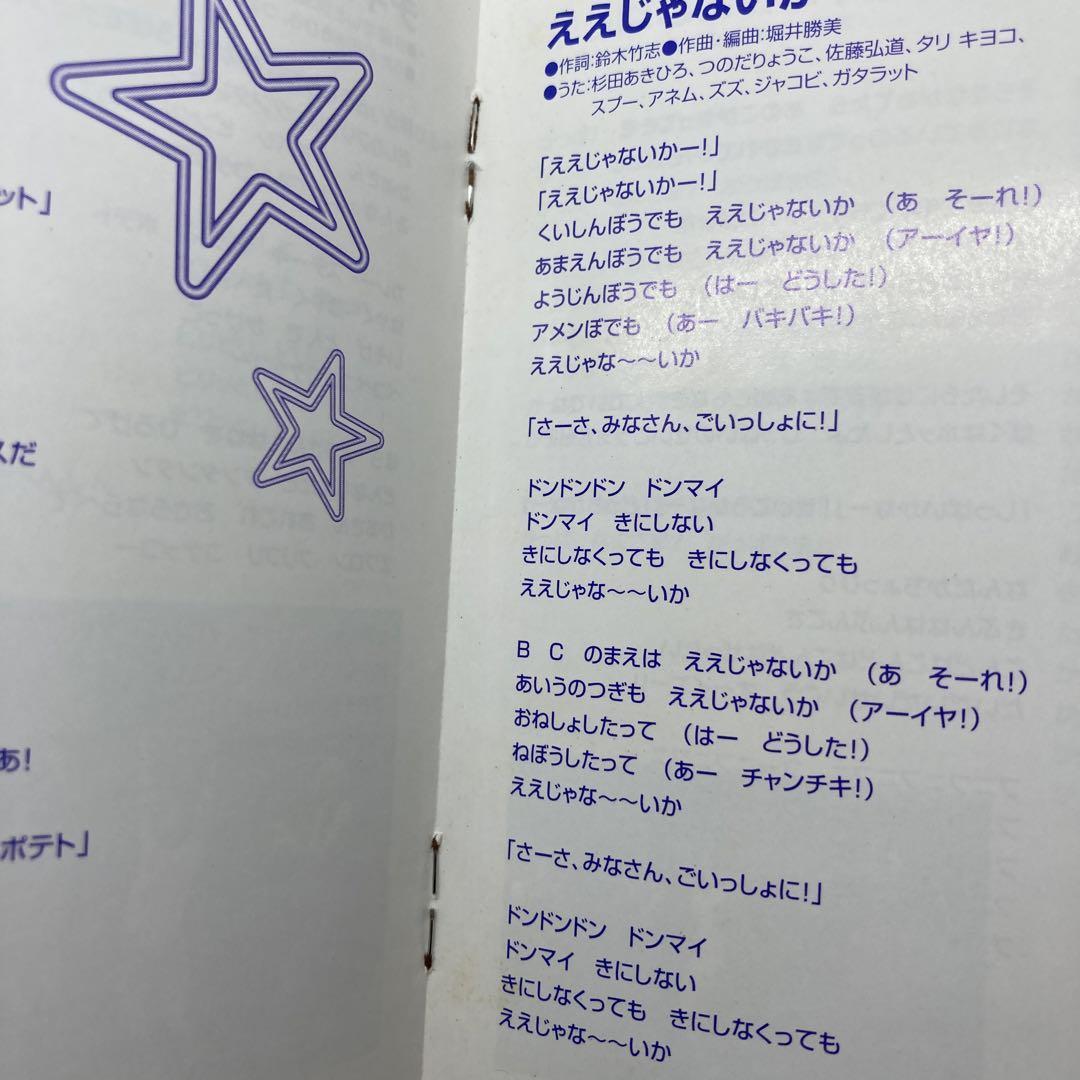 ット」
スだ
あ!
ポテト」
ええじゃないか
●作詞:鈴木竹志●作曲・編曲:堀井勝美
●うた:杉田あきひろ、つのだりょうこ、佐藤弘道、タリ キヨコ、
スプー、アネム、ズズ、ジャコビ、ガタラット
「ええじゃないかー!」
「ええじゃないかー!」
くいしんぼうでも ええじゃないか (あ そーれ!)
あまえんぼうでも ええじゃないか (アーイヤ!)
ようじんぼうでも (はー どうした!)
アメンぼでも (あー バキバキ!)
ええじゃな〜〜いか
「さーさ、みなさん、ごいっしょに!」
ドンドンドン ドンマイ
ドンマイ きにしない
きにしなくっても きにしなくっても
ええじゃな〜〜いか
B C のまえは ええじゃないか (あ そーれ!)
あいうのつぎも ええじゃないか (アーイヤ!)
おねしょしたって (はー どうした!)
ねぼうしたって (あー チャンチキ!)
ええじゃな〜〜いか
「さーさ、みなさん、ごいっしょに!」
ドンドンドン ドンマイ
ドンマイ きにしない
きにしなくっても きにしなくっても
ええじゃな〜〜いか